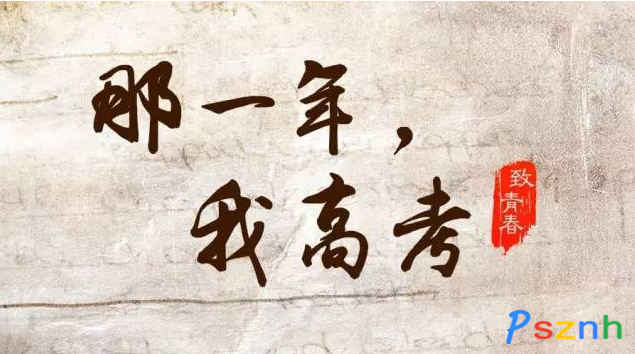 那一年，
我高考
致青春
Psznh